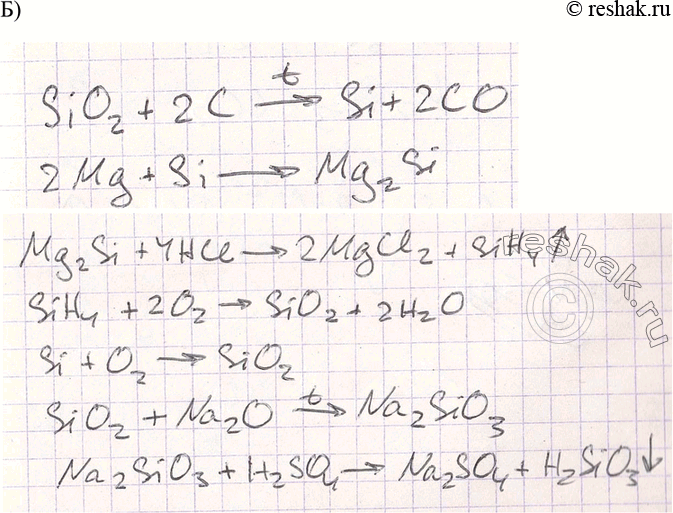 Б)
© reshak.ru
SiO₂ + 2C —t→ Si + 2CO
2Mg + Si → Mg₂Si
Mg₂Si + 4HCl → 2MgCl₂ + SiH₄↑
SiH₄ + 2O₂ → SiO₂ + 2H₂O
Si + O₂ → SiO₂
SiO₂ + Na₂O —t→ Na₂SiO₃
Na₂SiO₃ + H₂SO₄ → Na₂SO₄ + H₂SiO₃↓
reshak.ru
©